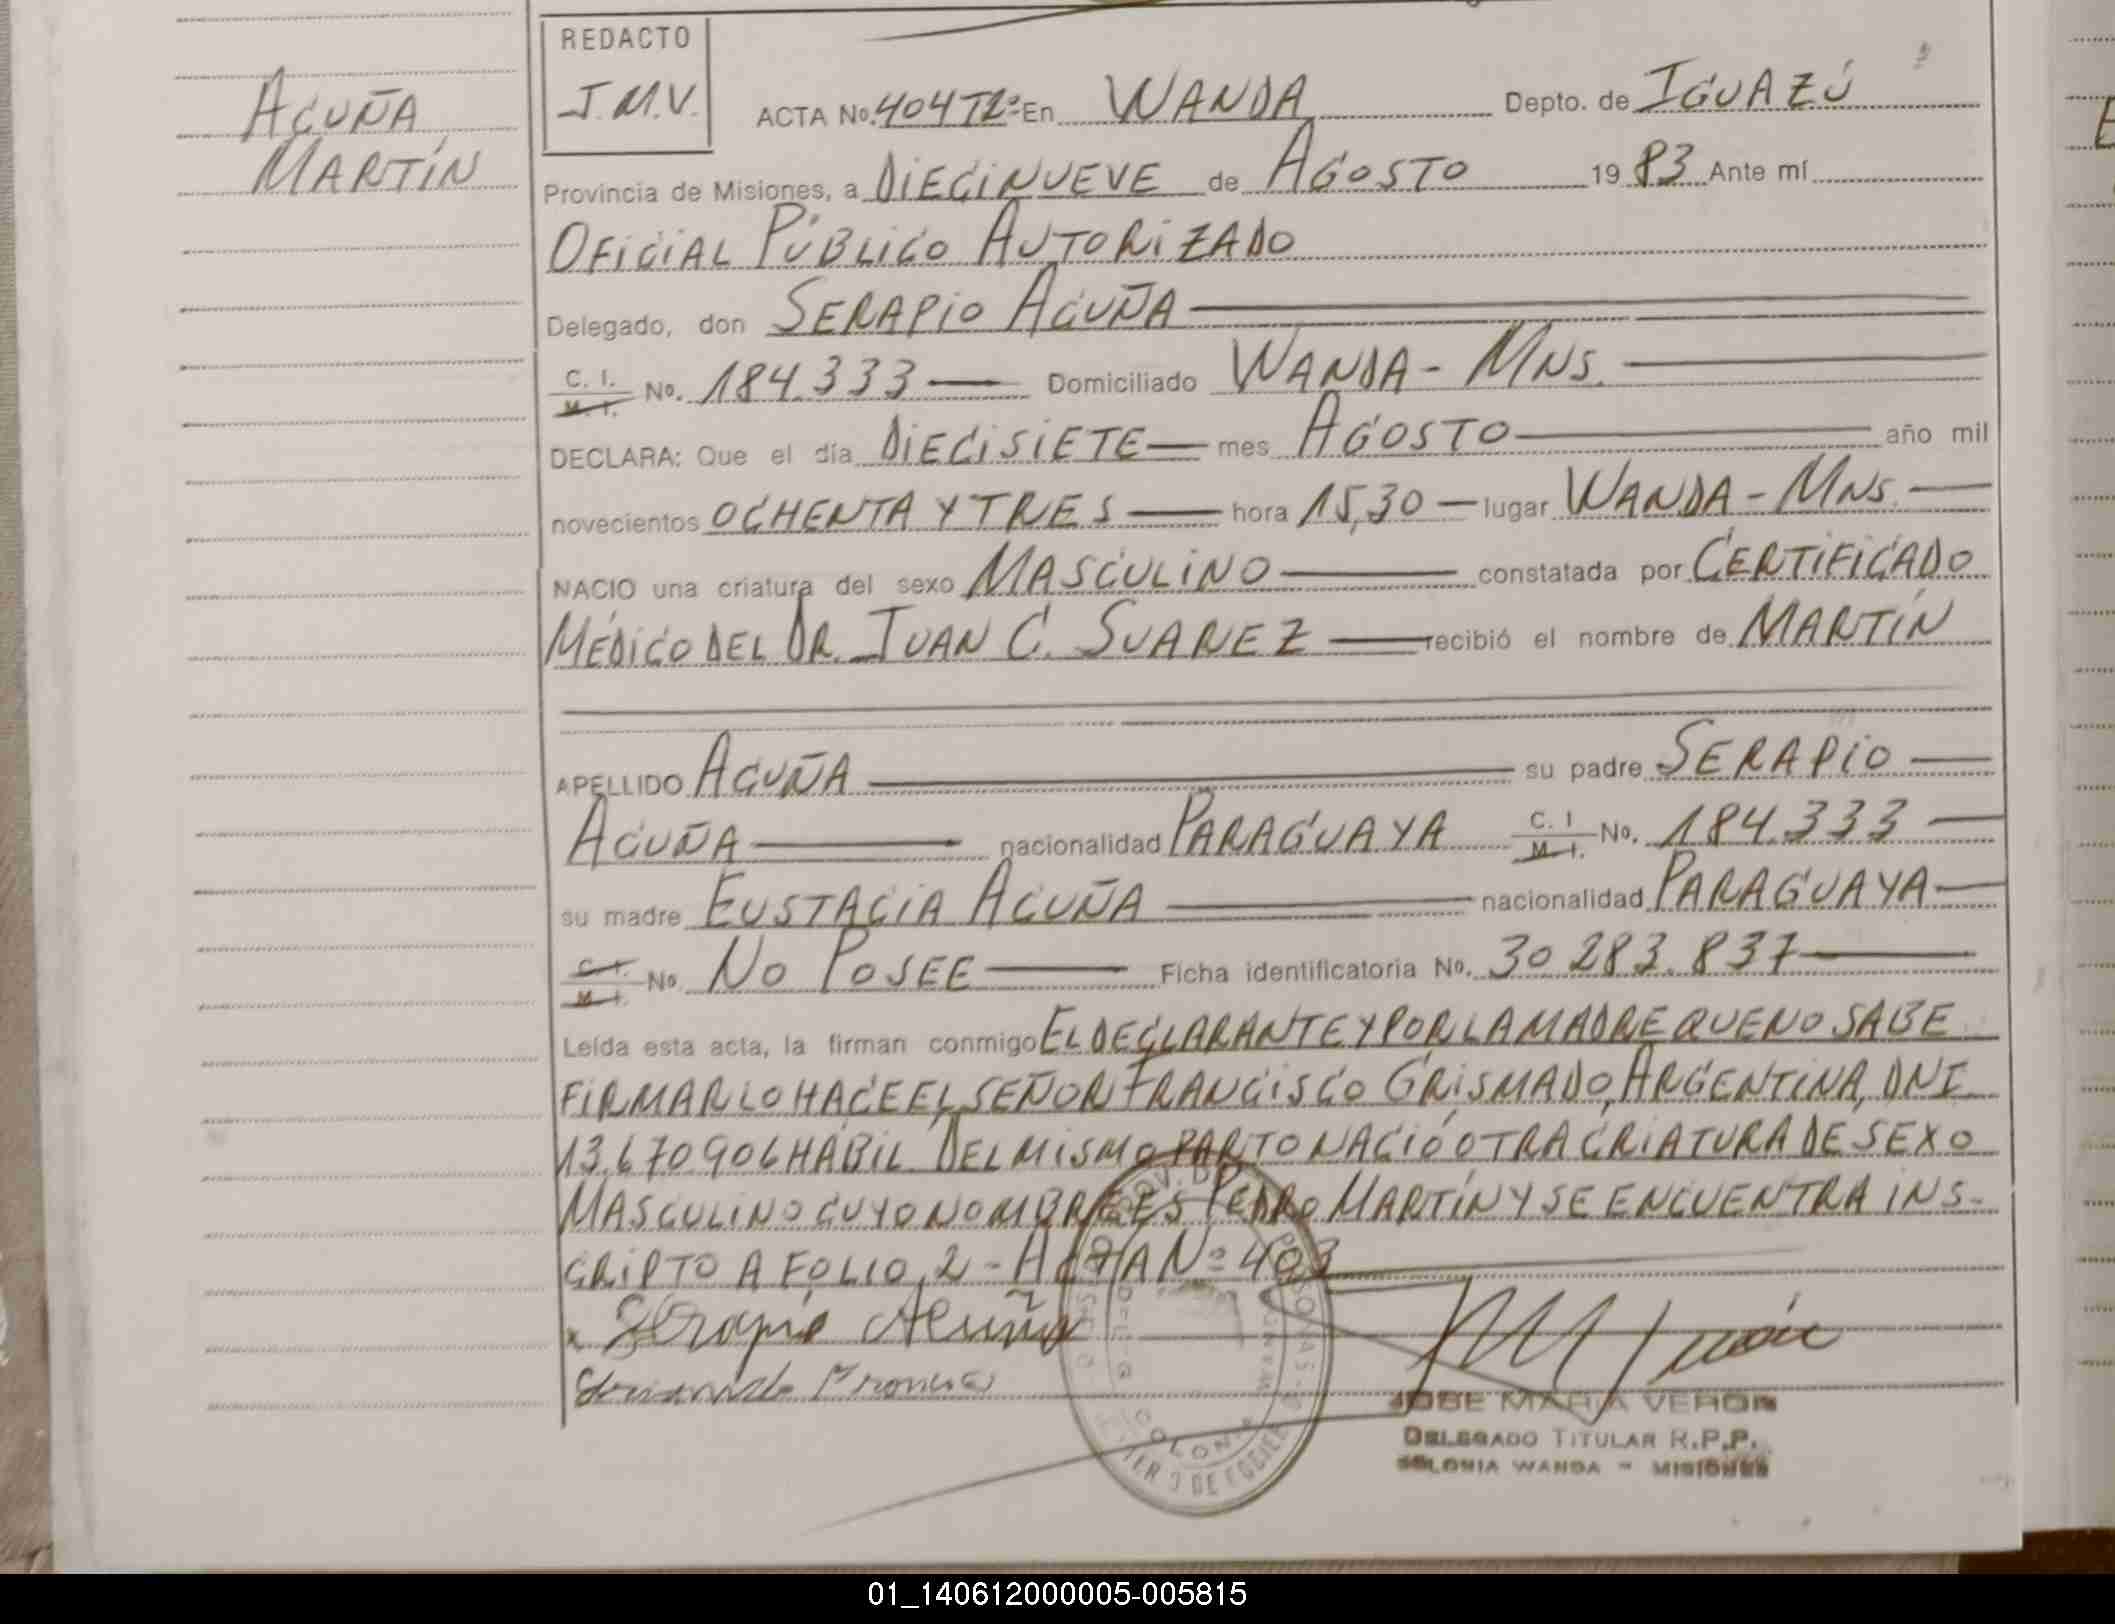 ACUÑA
MARTÍN
REDACTO
J.M.V.
ACTA No. 404 Tº2º En WANDA Depto. de IGUAZÚ
Provincia de Misiones, a DIECINUEVE de AGOSTO 1983 Ante mí
OFICIAL PÚBLICO AUTORIZADO
Delegado, don SERAPIO ACUÑA
C. I. M. I. No. 184.333 Domiciliado WANDA - MNS.
DECLARA: Que el día DIECISIETE mes AGOSTO año mil
novecientos OCHENTA Y TRES hora 15,30 lugar WANDA - MNS.
NACIO una criatura del sexo MASCULINO constatada por CERTIFICADO
MÉDICO DEL DR. JUAN C. SUAREZ recibió el nombre de MARTÍN
APELLIDO ACUÑA su padre SERAPIO
ACUÑA nacionalidad PARAGUAYA C. I M. I. No. 184.333
su madre EUSTACIA ACUÑA nacionalidad PARAGUAYA
C. I. M. I. No. NO POSEE Ficha identificatoria No. 30 283.837
Leída esta acta, la firman conmigo EL DECLARANTE Y POR LA MADRE QUE NO SABE
FIRMAR LO HACE EL SEÑOR FRANCISCO GRISMADO, ARGENTINA, DNI
13.670.906 HÁBIL. DEL MISMO PARTO NACIÓ OTRA CRIATURA DE SEXO
MASCULINO CUYO NOMBRE ES PEDRO MARTÍN Y SE ENCUENTRA INS-
CRIPTO A FOLIO 2 - ACTA Nº 403
x Serapio Acuña
JOSE MARIA VERON
DELEGADO TITULAR R.P.P.
COLONIA WANDA - MISIONES
01_140612000005-005815